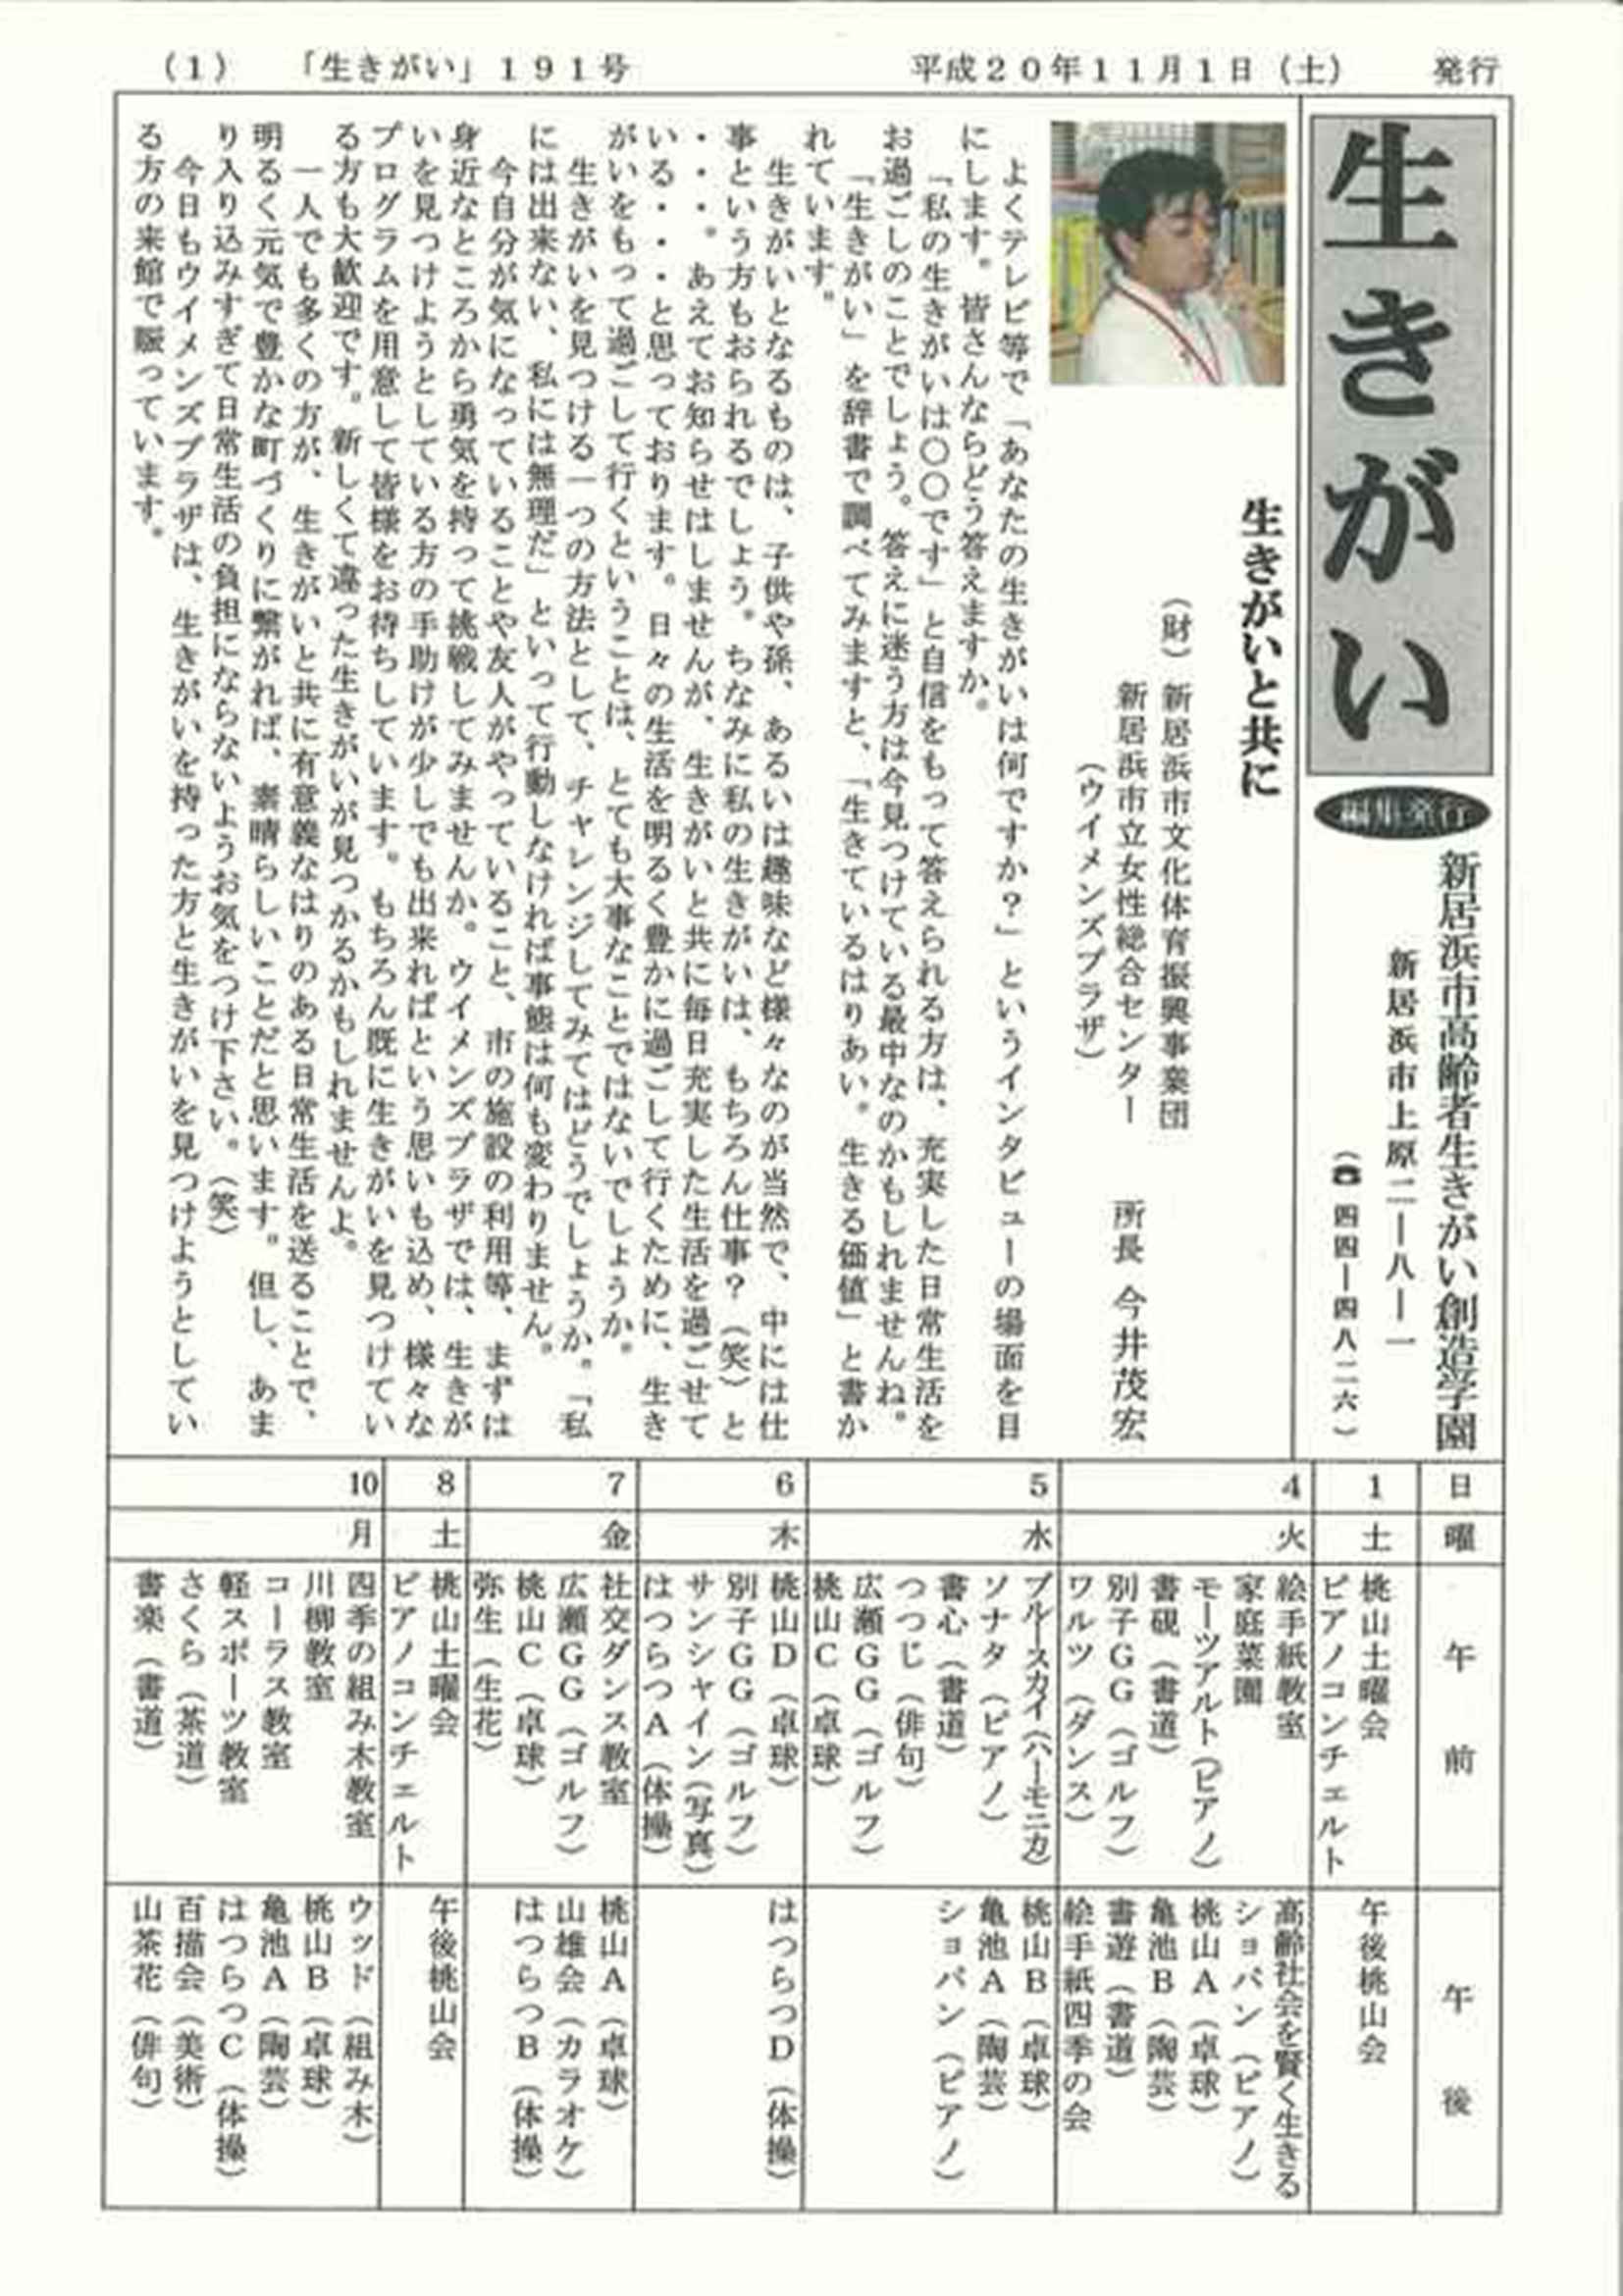 (1)　「生きがい」191号　平成20年11月1日（土）　発行
生きがい
編集発行
新居浜市高齢者生きがい創造学園
新居浜市上原二ー八ー一
（☎四四ー四八二六）
生きがいと共に
（財）新居浜市文化体育振興事業団
新居浜市立女性総合センター　所長　今井茂宏
（ウイメンズプラザ）
よくテレビ等で「あなたの生きがいは何ですか？」というインタビューの場面を目
にします。皆さんならどう答えますか。
「私の生きがいは〇〇です」と自信をもって答えられる方は、充実した日常生活を
お過ごしのことでしょう。答えに迷う方は今見つけている最中なのかもしれませんね。
「生きがい」を辞書で調べてみますと、「生きているはりあい。生きる価値」と書か
れています。
生きがいとなるものは、子供や孫、あるいは趣味など様々なのが当然で、中には仕
事という方もおられるでしょう。ちなみに私の生きがいは、もちろん仕事？（笑）と
・・・。あえてお知らせはしませんが、生きがいと共に毎日充実した生活を過ごせて
いる・・・と思っております。日々の生活を明るく豊かに過ごして行くために、生き
がいをもって過ごして行くということは、とても大事なことではないでしょうか。
生きがいを見つける一つの方法として、チャレンジしてみてはどうでしょうか。「私
には出来ない、私には無理だ」といって行動しなければ事態は何も変わりません。
今自分が気になっていることや友人がやっていること、市の施設の利用等、まずは
身近なところから勇気を持って挑戦してみませんか。ウイメンズプラザでは、生きが
いを見つけようとしている方の手助けが少しでも出来ればという思いも込め、様々な
プログラムを用意して皆様をお待ちしています。もちろん既に生きがいを見つけてい
る方も大歓迎です。新しくて違った生きがいが見つかるかもしれませんよ。
一人でも多くの方が、生きがいと共に有意義なはりのある日常生活を送ることで、
明るく元気で豊かな町づくりに繋がれば、素晴らしいことだと思います。但し、あま
り入り込みすぎて日常生活の負担にならないようお気をつけ下さい。（笑）
今日もウイメンズプラザは、生きがいを持った方と生きがいを見つけようとしてい
る方の来館で賑っています。
日
曜
午前
午後
1
土
桃山土曜会
ピアノコンチェルト
午後桃山会
4
火
絵手紙教室
家庭菜園
モーツアルト（ピアノ）
書硯（書道）
別子GG（ゴルフ）
ワルツ（ダンス）
高齢社会を賢く生きる
ショパン（ピアノ）
桃山A（卓球）
亀池B（陶芸）
書遊（書道）
絵手紙四季の会
5
水
ブルースカイ（ハーモニカ）
ソナタ（ピアノ）
書心（書道）
つつじ（俳句）
広瀬GG（ゴルフ）
桃山C（卓球）
桃山B（卓球）
亀池A（陶芸）
ショパン（ピアノ）
6
木
桃山D（卓球）
別子GG（ゴルフ）
サンシャイン（写真）
はつらつA（体操）
はつらつD（体操）
7
金
社交ダンス教室
広瀬GG（ゴルフ）
桃山C（卓球）
弥生（生花）
桃山A（卓球）
山雄会（カラオケ）
はつらつB（体操）
8
土
桃山土曜会
ピアノコンチェルト
午後桃山会
10
月
四季の組み木教室
川柳教室
コーラス教室
軽スポーツ教室
さくら（茶道）
書楽（書道）
ウッド（組み木）
桃山B（卓球）
亀池A（陶芸）
はつらつC（体操）
百描会（美術）
山茶花（俳句）